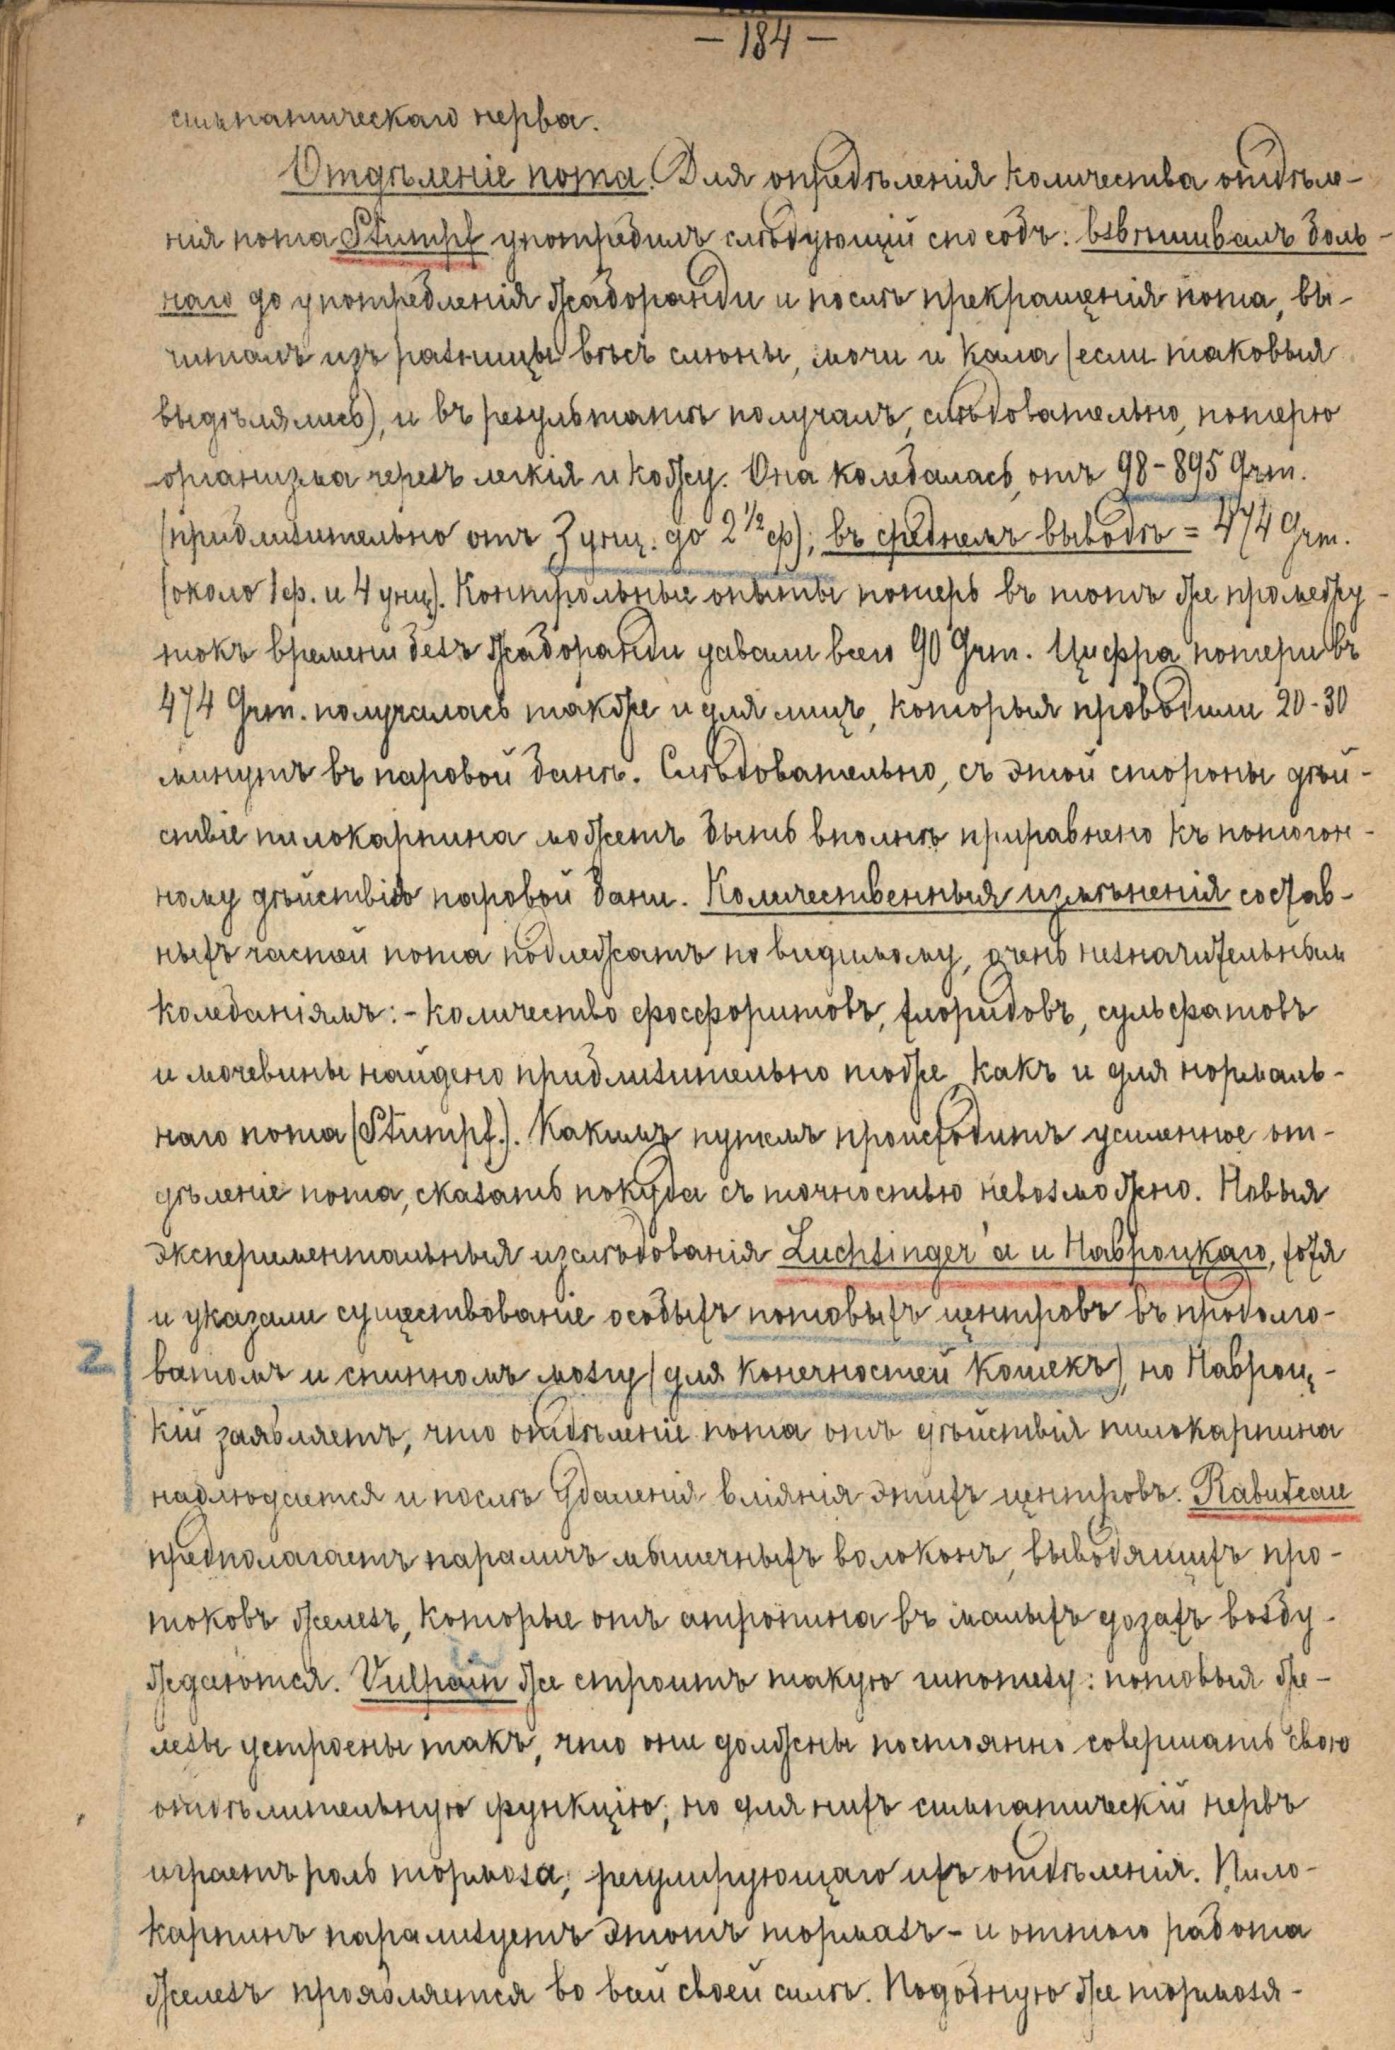 — 184 —
симпатическаго нерва.
Отдѣленіе пота. Для опредѣленія количества отдѣле-
нія пота Stumpf употребилъ слѣдующій способъ: взвѣшивалъ боль-
наго до употребленія Жаборанди и послѣ прекращенія пота, вы-
читалъ изъ разницы вѣсъ слюны, мочи и кала (если таковыя
выдѣлялись), и въ результатѣ получалъ, слѣдовательно, потерю
организма черезъ легкія и кожу. Она колебалась, отъ 98-895 Grm.
(приблизительно отъ 3 унц. до 2 1/2 ф); въ среднемъ выводѣ = 474 Grm.
(около 1 ф. и 4 унц). Контрольные опыты потерь въ тотъ же промежу-
токъ времени безъ Жаборанди давали всего 90 Grm. Цифра потери въ
474 Grm. получалась также и для лицъ, которыя проводили 20-30
минутъ въ паровой банѣ. Слѣдовательно, съ этой стороны дѣй-
ствіе пилокарпина можетъ быть вполнѣ приравнено къ потогон-
ному дѣйствію паровой бани. Количественныя измѣненія состав-
ныхъ частей пота подлежатъ по видимому, очень незначительнымъ
колебаніямъ: - количество фосфоритовъ, хлоридовъ, сульфатовъ
и мочевины найдено приблизительно тоже, какъ и для нормаль-
наго пота (Stumpf.). Какимъ путемъ происходитъ усиленное от-
дѣленіе пота, сказать покуда съ точностью невозможно. Новыя
экспериментальныя изслѣдованія Luchsinger'а и Навроцкаго, хотя
и указали существованіе особыхъ потовыхъ центровъ въ продолго-
2 ватомъ и спинномъ мозгу (для конечностей кошекъ), но Навроц-
кій заявляетъ, что отдѣленіе пота отъ дѣйствія пилокарпина
наблюдается и послѣ удаленія вліянія этихъ центровъ. Rabuteau
предполагаетъ параличъ мышечныхъ волоконъ, выводящихъ про-
токовъ железъ, которые отъ атропина въ малыхъ дозахъ возбу-
ждаются. Vulpain же строитъ такую гипотезу: потовыя же-
лезы устроены такъ, что они должны постоянно совершать свою
отдѣлительную функцію; но для нихъ симпатическій нервъ
играетъ роль тормоза, регулирующаго ихъ отдѣленія. Пило-
карпинъ парализуетъ этотъ тормазъ - и оттого работа
железъ проявляется во всей своей силѣ. Подобную же тормозя-